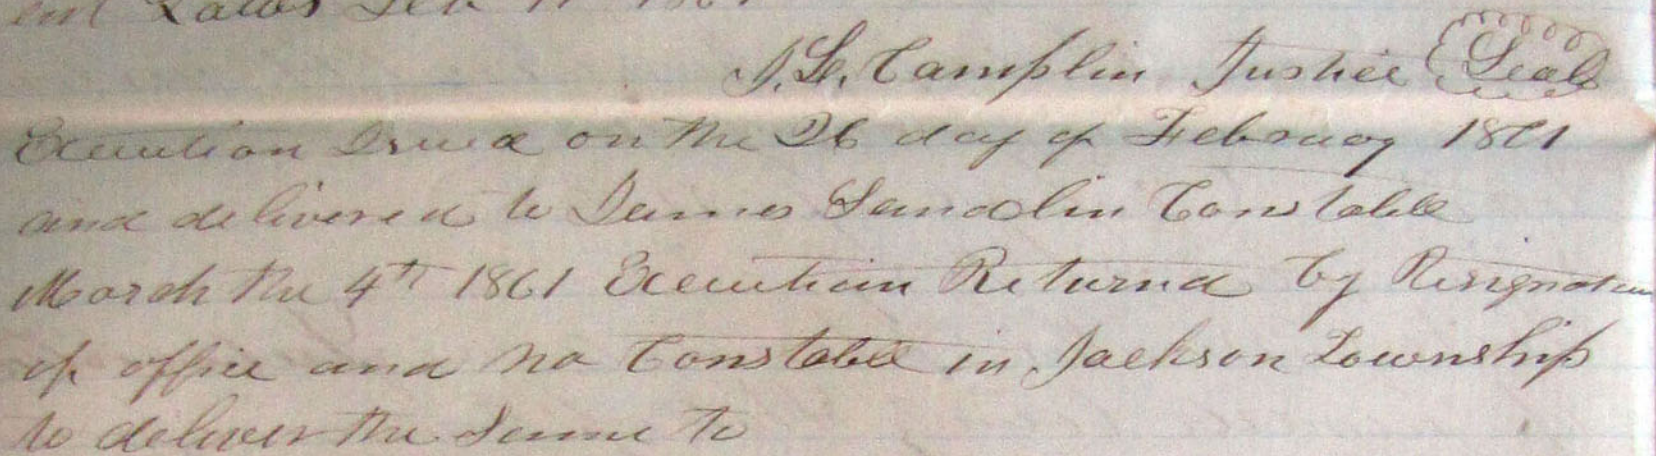 ent Laws Feb 11 1861
J. L. Camplin Justice Seal
Execution Issued on the 26 day of February 1861
and delivered to James Sandlin Constable
March the 4th 1861 Execution Returnd by Resignation
of office and no Constable in Jackson Township
to deliver the Same to